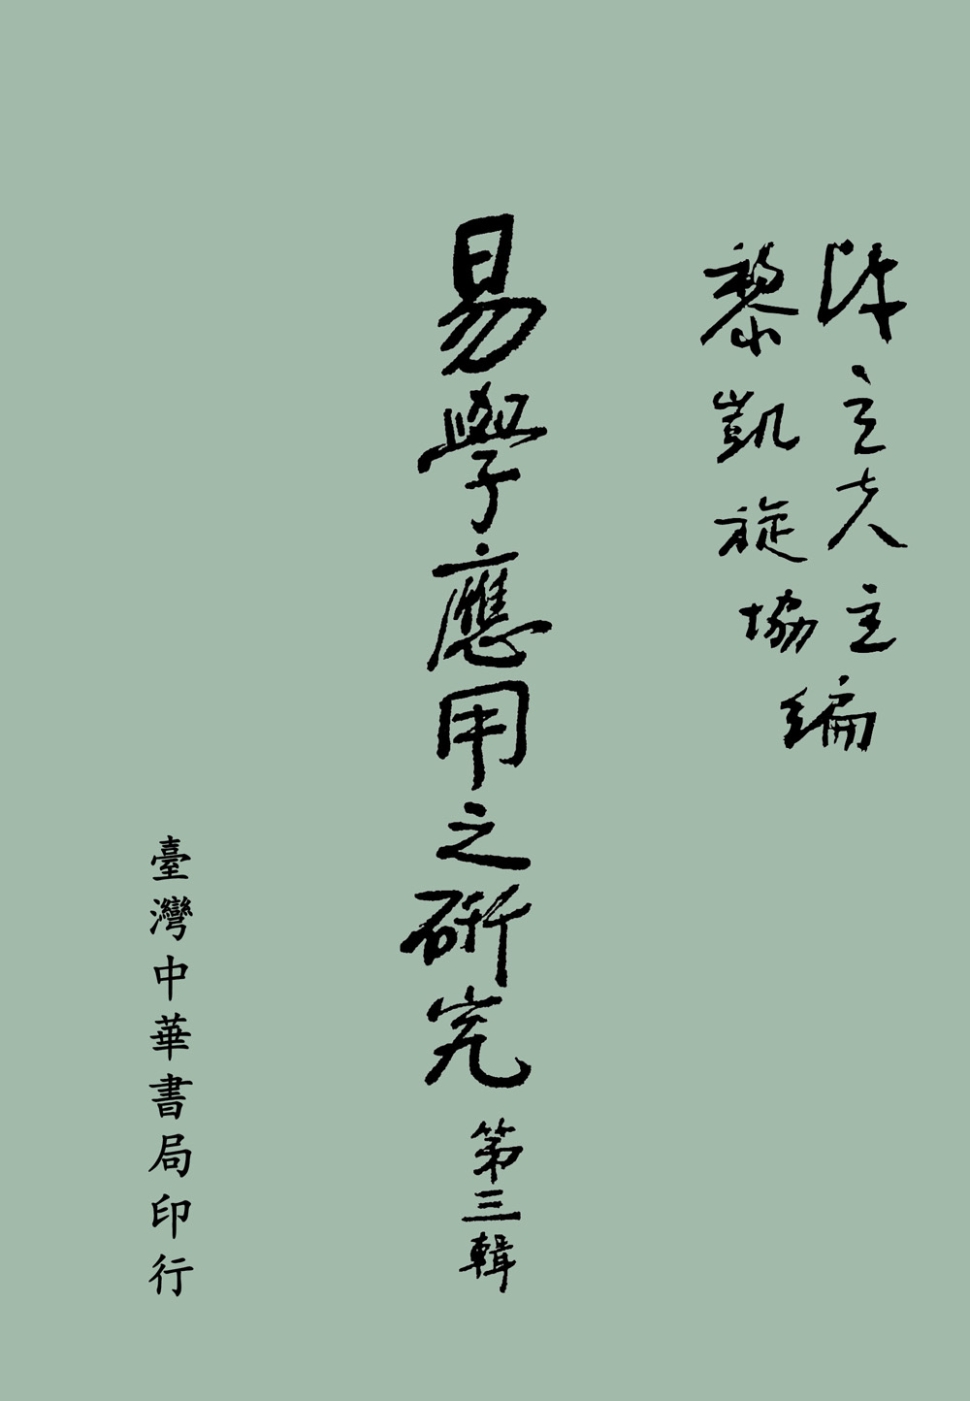 陳立夫主編
黎凱旋協編
易學應用之研究 第三輯
臺灣中華書局印行